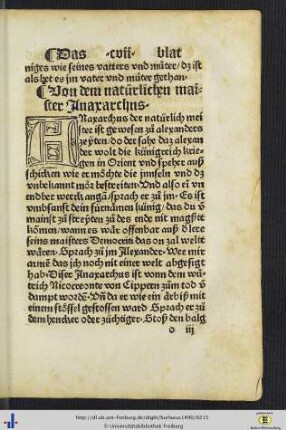 ¶Das ·cvii· blat
niges wie seines vatters vnd můter/ dz ist
als het es jm vater vnd můter gethan·
¶Von dem natürlichen mai-
ster Anaxarchus·
ANaxarchus der natürlich mei
ster ist gewesen zů alexanders
zeyten/ do der sahe daz alexan
der wolt die künigreich krie-
gen in Orient vnd speher auß
schicken wie er möchte die jnnseln vnd dz
vnbekannt mör bestreiten· Vnd also
sprach er zů jm· Es ist
vmbsunst dein fürnämen künig/ das du
mainst zů streyten zů des ende nit magst
komen/ wann es wär offenbar auß
seins maisters Democriti das on zal welt
wären· Sprach zů jm Alexander· Wee mir
armē das jch noch nit einer welt abgesigt
hab· Diser Anaxarchus ist vonn dem wü-
trich Nicocreonte von Cippern zům tod v̄
dampt wordē· Vn̄ da er wie ein ärbiß mit
einem stössel gestossen ward Sprach er zů
dem hencker oder züchtiger· Stoß den balg
o iij
http://dl.ub.uni-freiburg.de/diglit/burlaeus1490/0215
© Universitätsbibliothek Freiburg